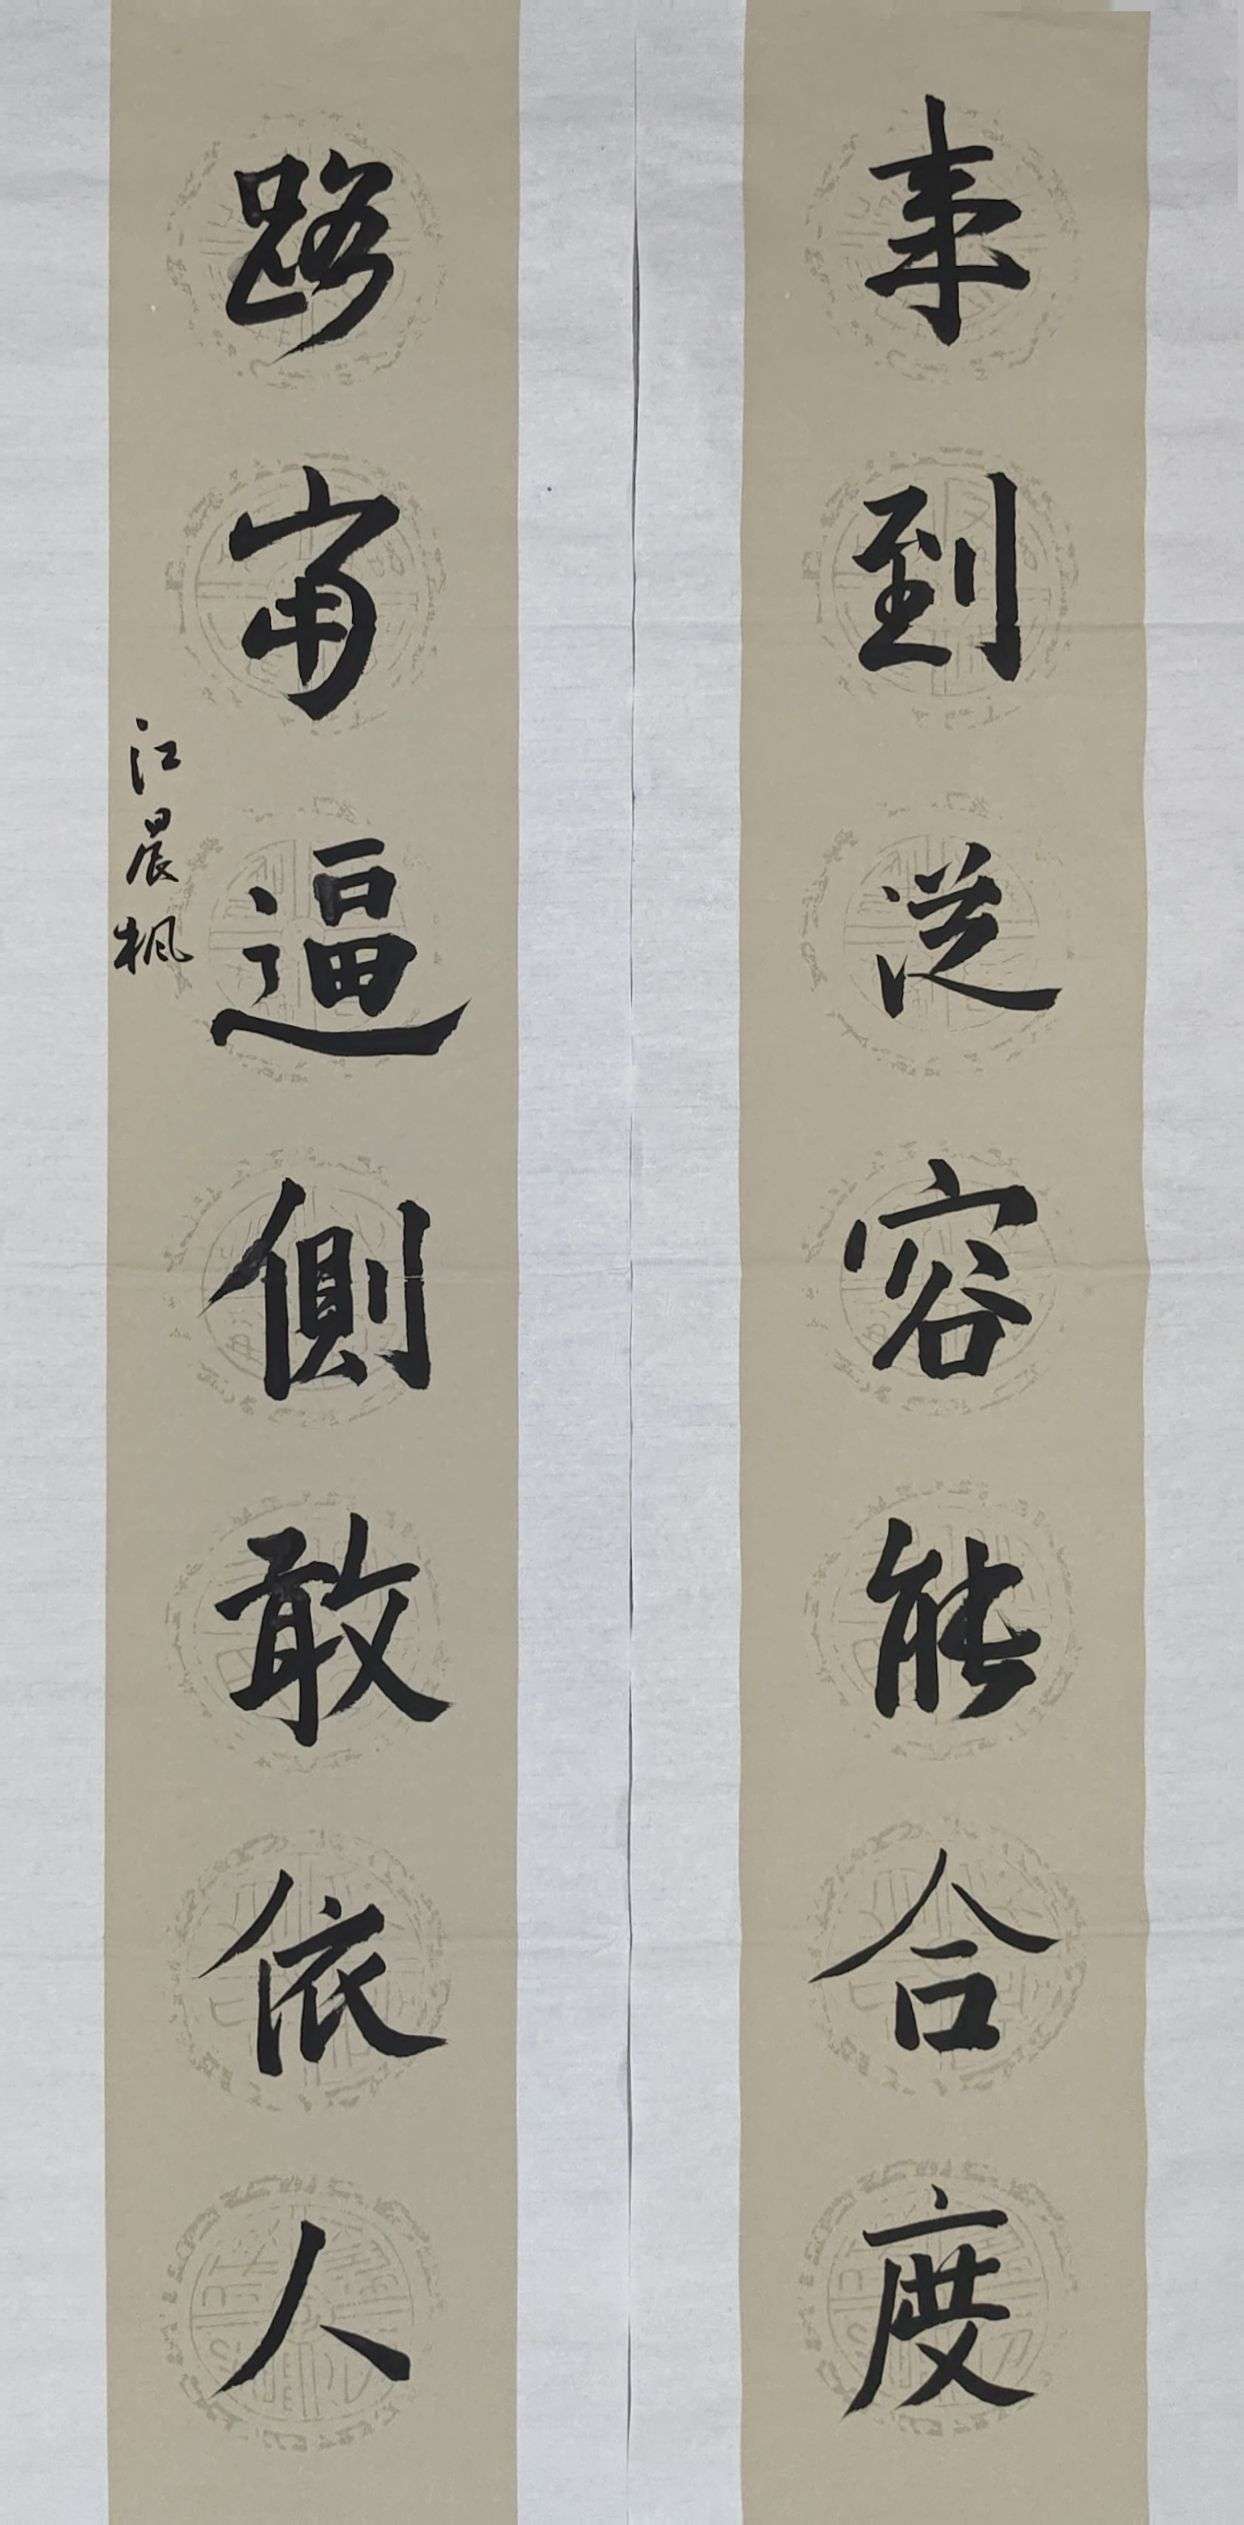 事到從容能合度
路甯逼側敢依人
江晨楓